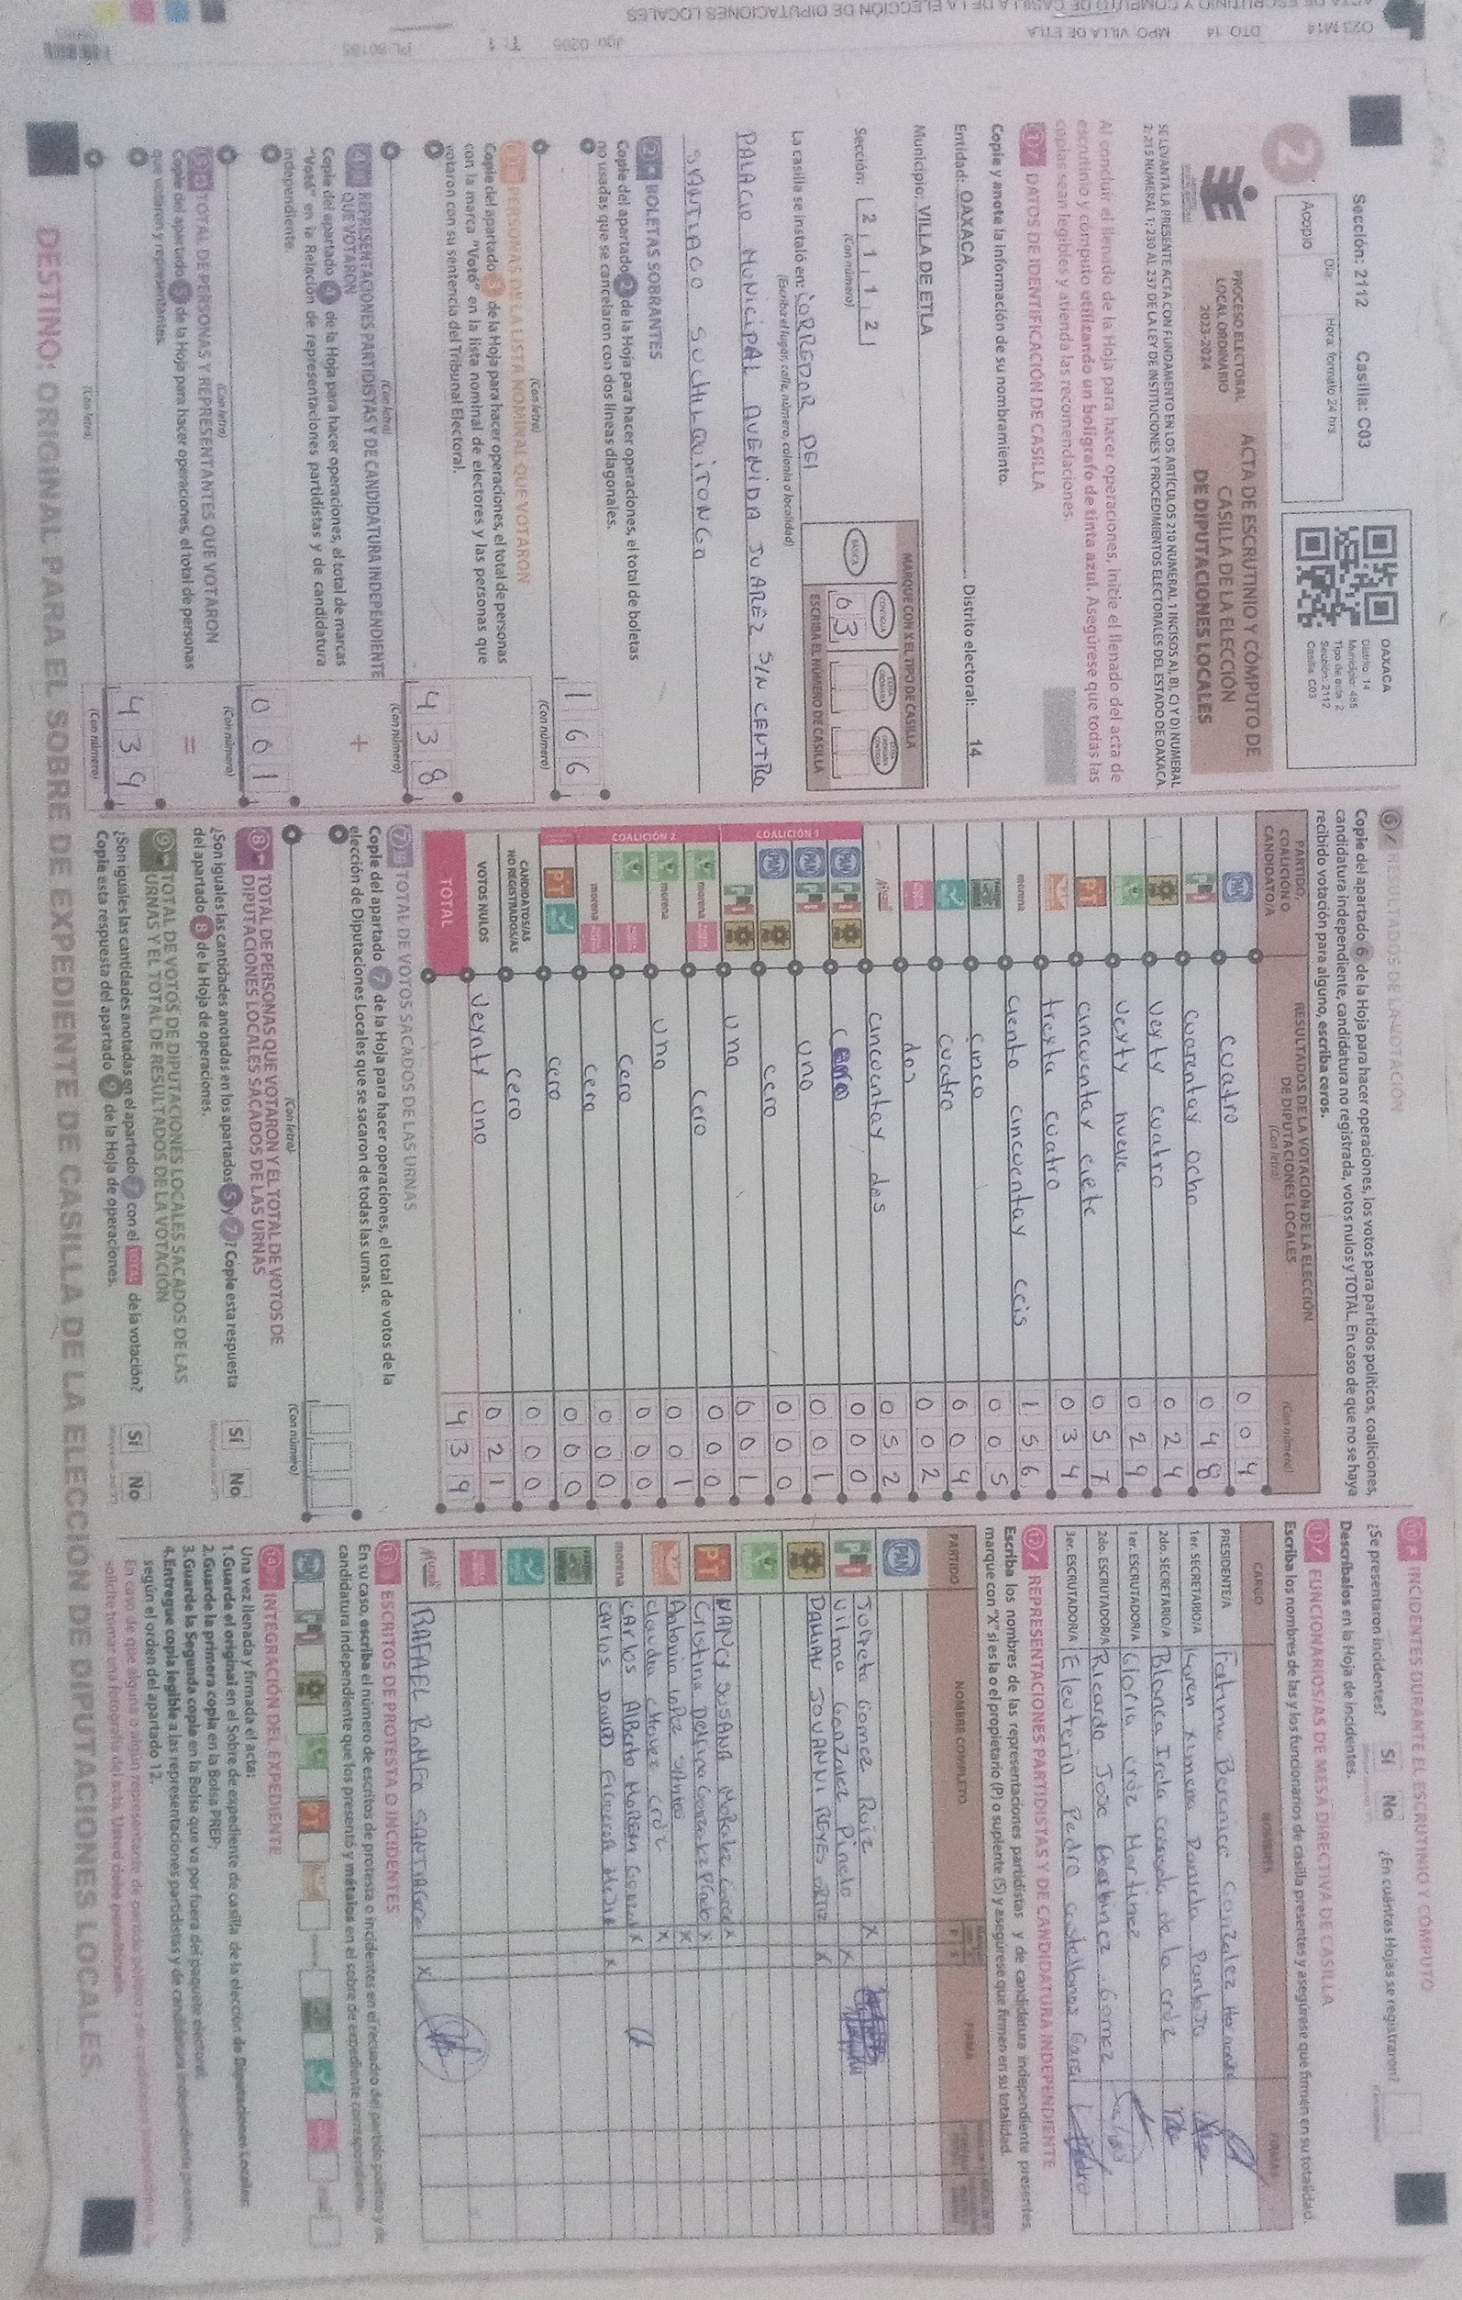 Sección: 2112 Casilla: C03
Día: Hora: formato 24 hrs
Acopio
2
OAXACA
Distrito: 14
Municipio: 485
Tipo de acta: 2
Sección: 2112
Casilla: C03
PROCESO ELECTORAL
LOCAL ORDINARIO
2023-2024
ACTA DE ESCRUTINIO Y CÓMPUTO DE
CASILLA DE LA ELECCIÓN
DE DIPUTACIONES LOCALES
SE LEVANTA LA PRESENTE ACTA CON FUNDAMENTO EN LOS ARTÍCULOS 210 NUMERAL 1 INCISOS A), B), C) Y D) NUMERAL
2; 215 NUMERAL 1; 230 AL 237 DE LA LEY DE INSTITUCIONES Y PROCEDIMIENTOS ELECTORALES DEL ESTADO DE OAXACA
Al concluir el llenado de la Hoja para hacer operaciones, inicie el llenado del acta de
escrutinio y cómputo utilizando un bolígrafo de tinta azul. Asegúrese que todas las
copias sean legibles y atienda las recomendaciones.
1 DATOS DE IDENTIFICACIÓN DE CASILLA
Copie y anote la información de su nombramiento.
Entidad: OAXACA Distrito electoral: 14
Municipio: VILLA DE ETLA
Sección: 2112
(Con número)
MARQUE CON X EL TIPO DE CASILLA
BÁSICA CONTIGUA
03
ESCRIBA EL NÚMERO DE CASILLA
La casilla se instaló en: CORREDOR DEl
(Escriba el lugar, calle, número, colonia o localidad)
PALACIO MUNICIPAL AVENIDA JUAREZ S/N CENTRO
SANTIAGO SUCHILQUITONGO
2 BOLETAS SOBRANTES
Copie del apartado 2 de la Hoja para hacer operaciones, el total de boletas
no usadas que se cancelaron con dos líneas diagonales.
166
(Con letra) (Con número)
3 PERSONAS DE LA LISTA NOMINAL QUE VOTARON
Copie del apartado 3 de la Hoja para hacer operaciones, el total de personas
con la marca "Votó" en la lista nominal de electores y las personas que
votaron con su sentencia del Tribunal Electoral.
438
(Con letra) (Con número)
4 REPRESENTACIONES PARTIDISTAS Y DE CANDIDATURA INDEPENDIENTE
QUE VOTARON
Copie del apartado 4 de la Hoja para hacer operaciones, el total de marcas
"Votó" en la Relación de representaciones partidistas y de candidatura
independiente.
+
001
(Con letra) (Con número)
5 TOTAL DE PERSONAS Y REPRESENTANTES QUE VOTARON
Copie del apartado 5 de la Hoja para hacer operaciones, el total de personas
que votaron y representantes.
=
439
(Con letra) (Con número)
6 RESULTADOS DE LA VOTACIÓN
Copie del apartado 6 de la Hoja para hacer operaciones, los votos para partidos políticos, coaliciones,
candidatura independiente, candidatura no registrada, votos nulos y TOTAL. En caso de que no se haya
recibido votación para alguno, escriba ceros.
PARTIDO, COALICIÓN O CANDIDATO/A
RESULTADOS DE LA VOTACIÓN DE LA ELECCIÓN
DE DIPUTACIONES LOCALES
(Con letra) (Con número)
PAN cuatro 004
PRI cuarentay ocho 048
veyty cuatro 024
veyty nueve 029
PT cincuentay ciete 057
treyta cuatro 034
morena ciento cincuentay ceis 156
cinco 005
cuatro 004
dos 002
cincuentay dos 052
COALICIÓN 1
PAN PRI 000
PAN PRI uno 001
PAN cero 000
PRI uno 001
COALICIÓN 2
morena cero 000
morena uno 001
cero 000
morena cero 000
PT cero 000
CANDIDATOS/AS
NO REGISTRADOS/AS cero 000
VOTOS NULOS veynty uno 021
TOTAL 439
7 TOTAL DE VOTOS SACADOS DE LAS URNAS
Copie del apartado 7 de la Hoja para hacer operaciones, el total de votos de la
elección de Diputaciones Locales que se sacaron de todas las urnas.
(Con letra) (Con número)
8 TOTAL DE PERSONAS QUE VOTARON Y EL TOTAL DE VOTOS DE
DIPUTACIONES LOCALES SACADOS DE LAS URNAS
¿Son iguales las cantidades anotadas en los apartados 5 y 7? Copie esta respuesta
del apartado 8 de la Hoja de operaciones.
Sí No
9 TOTAL DE VOTOS DE DIPUTACIONES LOCALES SACADOS DE LAS
URNAS Y EL TOTAL DE RESULTADOS DE LA VOTACIÓN
¿Son iguales las cantidades anotadas en el apartado 7 con el TOTAL de la votación?
Copie esta respuesta del apartado 9 de la Hoja de operaciones.
Sí No
10 INCIDENTES DURANTE EL ESCRUTINIO Y CÓMPUTO
¿Se presentaron incidentes? Sí No ¿En cuántas Hojas se registraron?
Descríbalos en la Hoja de incidentes.
11 FUNCIONARIOS/AS DE MESA DIRECTIVA DE CASILLA
Escriba los nombres de las y los funcionarios de casilla presentes y asegúrese que firmen en su totalidad.
CARGO NOMBRES FIRMAS
PRESIDENTE/A Fatima Berenice Gonzalez
1er. SECRETARIO/A Karen Ximena Daniela Pantoja
2do. SECRETARIO/A Blanca Irela de la cruz
1er. ESCRUTADOR/A Gloria cruz Martinez
2do. ESCRUTADOR/A Ricardo Jose Gomez
3er. ESCRUTADOR/A Eleuterio Pedro castellanos Garcia
12 REPRESENTACIONES PARTIDISTAS Y DE CANDIDATURA INDEPENDIENTE
Escriba los nombres de las representaciones partidistas y de candidatura independiente presentes,
marque con "X" si es la o el propietario (P) o suplente (S) y asegúrese que firmen en su totalidad.
PARTIDO NOMBRE COMPLETO P S FIRMA
PAN Julieta Gomez Ruiz X
PRI Vilma Gonzalez Pinelo X
DAMIAN JOVANNI REYES ORTIZ X
NANCY SUSANA Morales X
PT Cristina Delfina Gonzalez X
Antonio Lopez Santos X
Claudia chavez cruz X
morena CARLOS AlBerto MORGAN X
CARLOS DAVID FIGUEROA X
RAFAEL X
13 ESCRITOS DE PROTESTA O INCIDENTES
En su caso, escriba el número de escritos de protesta o incidentes en el recuadro del partido político y de
candidatura independiente que los presentó y métalos en el sobre de expediente correspondiente.
14 INTEGRACIÓN DEL EXPEDIENTE
Una vez llenada y firmada el acta:
1. Guarde el original en el Sobre de expediente de casilla de la elección de Diputaciones Locales;
2. Guarde la primera copia en la Bolsa PREP;
3. Guarde la Segunda copia en la Bolsa que va por fuera del paquete electoral;
4. Entregue copia legible a las representaciones partidistas y de candidatura independiente presentes,
según el orden del apartado 12.
DESTINO: ORIGINAL PARA EL SOBRE DE EXPEDIENTE DE CASILLA DE LA ELECCIÓN DE DIPUTACIONES LOCALES.
DTO 14 MPO VILLA DE ETLA